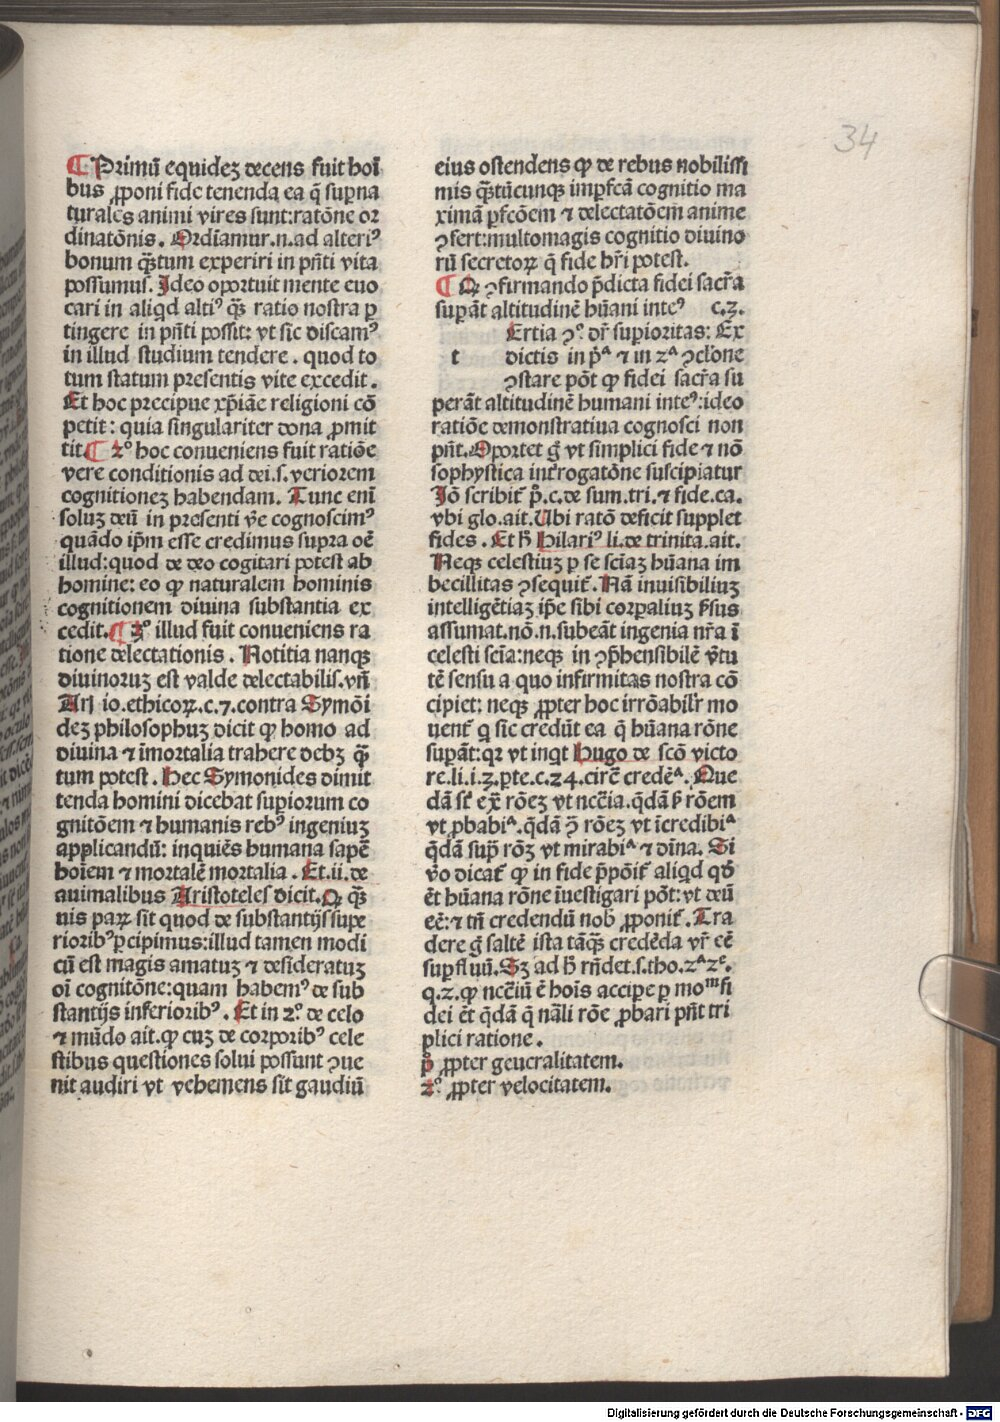 34
¶ Primū equidez decens fuit hoī
bus ꝓponi fide tenenda ea q̄ suꝑna
turales animi vires sunt:ratōne or
dinatōnis. Ordīamur.n.ad alteriꝰ
bonum qꝫ̄tum experiri in pn̄ti vita
possumus. Ideo oportuit mente euo
cari in aliqd altiꝰ qꝫ̄ ratio nostra ꝑ
tingere in pn̄ti possit: vt sic discamꝰ
in illud studium tendere. quod to
tum statum presentis vite excedit.
Et hoc precipue xp̄iāe religioni cō
petit: quia singulariter dona ꝓmit
tit. ¶ 2º hoc conueniens fuit ratiōe
vere conditionis ad dei.s.veriorem
cognitionez habendam. Tunc enī
soluz deū in presenti v̄e cognoscimꝰ
quādo ip̄m esse credimus supra oē
illud:quod de deo cogitari potest ab
homine: eo ꝙ naturalem hominis
cognitionem diuina substantia ex
cedit. ¶ 3º illud fuit conueniens ra
tione delectationis. Notitia nanqꝫ
diuinoruz est valde delectabilis.vn̄
Arī io.ethicoꝝ.c.7.contra Symōi
dez philosophuz dicit ꝙ homo ad
diuina ⁊ īmortalia trahere debz qꝫ̄
tum potest. Hec Symonides dimit
tenda homini dicebat suꝑiorum co
gnitōem ⁊ humanis rebꝰ ingeniuz
applicandū: inquiēs humana sapē
hoīem ⁊ mortalē mortalia. Et.ii.de
auimalibus Aristoteles dicit. Q qꝫ̄
uis paꝝ sit quod de substantijs supe
rioribꝰ ꝑcipimus:illud tamen modi
cū est magis amatuz ⁊ desideratuz
oī cognitōne:quam habemꝰ de sub
stantijs inferioribꝰ. Et in 2º. de celo
⁊ mūdo ait.ꝙ cuz de corporibꝰ cele
stibus questiones solui possunt ꝯue
nit audiri vt vehemens sit gaudiū
eius ostendens ꝙ de rebus nobilissi
mis qꝫ̄tūcunqꝫ imꝑfcā cognitio ma
ximā ꝑfcōem ⁊ delectatōem̄ anime
ꝯfert:multomagis cognitio diuino
rū secretoꝝ q̄ fide hr̄i potest.
¶ Q ꝯfirmando p̄dicta fidei sacr̄a
suꝑāt altitudinē hūani inteꝰ c.3.
Ertia ꝯº. dr̄ suꝑioritas: Ex
t dictis in pᵃ̄ ⁊ in 2ᵃ ꝯclōne
ꝯstare pōt ꝙ fidei sacr̄a su
perāt altitudinē humani inteꝰ:ideo
ratiōe demonstratiua cognosci non
pn̄t. Oportet g̊ vt simplici fide ⁊ nō
sophystica int̄rogatōne suscipiatur
Iō scribit̄ pº̄.c.de sum.tri.⁊ fide.ca.
vbi glo.ait. Ubi ratō deficit supplet
fides. Et h̄ Hilariꝰ li.de trinita.ait.
Neqꝫ celestiuz ꝑ se sciaz hūana im
becillitas ꝯsequit̄. Nā inuisibiliuz
intelligētiaz ip̄e sibi corꝑaliuz s̄sus
assumat.nō.n.subeāt ingenia nr̄a ī
celesti scīa:neqꝫ in ꝯp̄hensibilē v̄tu
tē sensu a quo infirmitas nostra cō
cipiet: neqꝫ ꝓpter hoc irrōabilr̄ mo
uent̄ q sic credūt ea q̄ hūana rōne
suꝑāt:qꝛ vt inqt Hugo de scō victo
re.li.i.3.ꝑte.c.24.circ̄ credēᵃ. Que
dā st̄ ex̄ rōez vt ncc̄ia.qdā ẜ rōem
vt ꝓbabiᵃ.qdā ꝯ̄ rōez vt īcredibiᵃ
qdā supr̄ rōz vt mirabiᵃ ⁊ dīna. Si
v̄o dicat̄ ꝙ in fide p̄pōit̄ aliqd qđ
ēt hūana rōne īuestigari pōt:vt deū
eē:⁊ tn̄ credendū nob ꝓponit̄. Tra
dere g̊ saltē ista tāqꝫ̄ credēda vr̄ eē
suꝑfluū. Sꝫ ad h̄ rn̄det.s.tho.2ᵃ2ᵉ.
q.2.ꝙ ncc̄iū ē hoīs acciꝑe ꝑ moᵐ fi
dei ēt qdā q̄ nāli rōe ꝓbari pn̄t tri
plici ratione.
pº̄ ꝓpter geueralitatem.
2º. ꝓpter velocitatem.
Digitalisierung gefördert durch die Deutsche Forschungsgemeinschaft - DFG